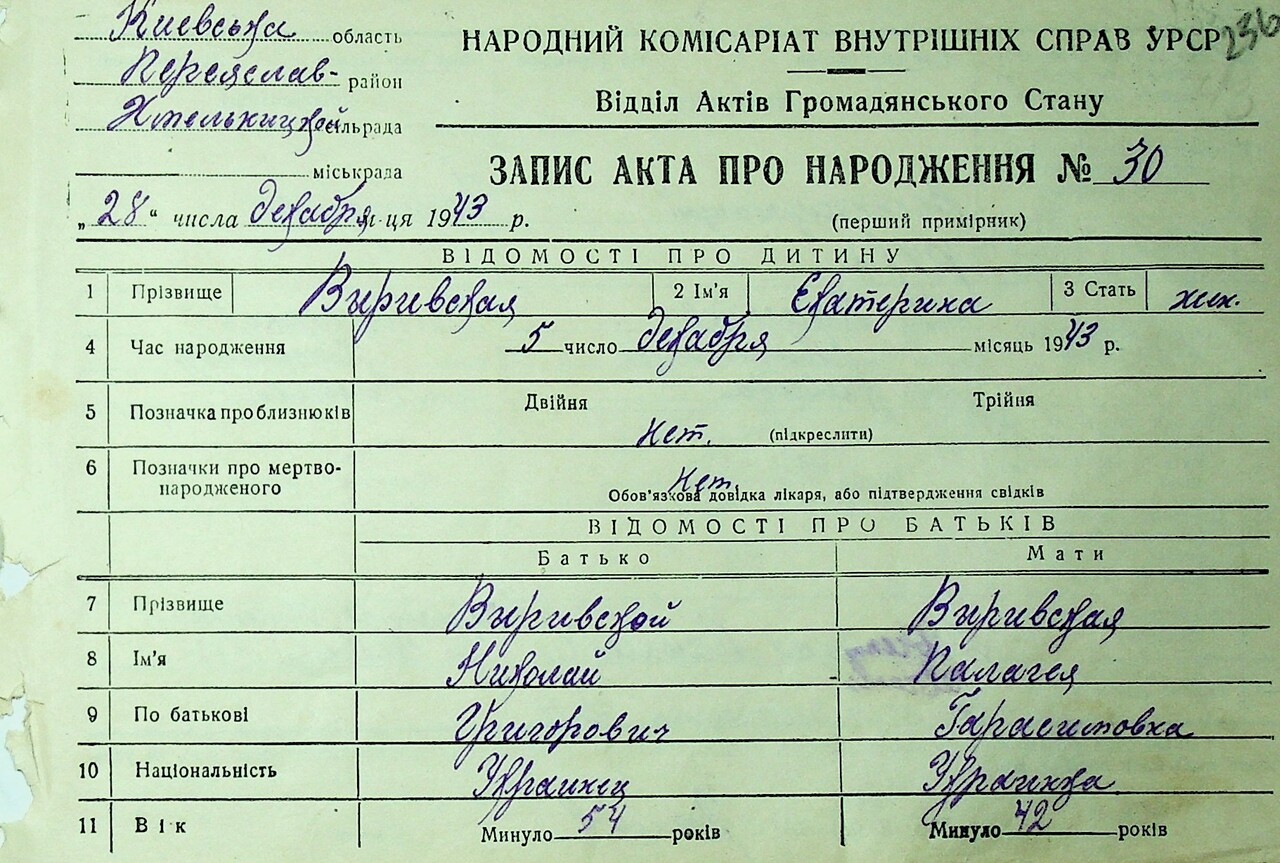 Киевська область
Переяслав- район
Хмельницкой сільрада
міськрада
„28" числа декабря м-ця 1943 р.
236
НАРОДНИЙ КОМІСАРІАТ ВНУТРІШНІХ СПРАВ УРСР
Відділ Актів Громадянського Стану
ЗАПИС АКТА ПРО НАРОДЖЕННЯ № 30
(перший примірник)
ВІДОМОСТІ ПРО ДИТИНУ
1 Прізвище Выривская 2 Ім'я Екатерина 3 Стать жен.
4 Час народження 5 число декабря місяць 1943 р.
5 Позначка про близнюків Двійня Трійня
нет. (підкреслити)
6 Позначки про мертво-
народженого нет.
Обов'язкова довідка лікаря, або підтвердження свідків
ВІДОМОСТІ ПРО БАТЬКІВ
Батько Мати
7 Прізвище Выривской Выривская
8 Ім'я Николай Палагея
9 По батькові Григорович Гарасимовна
10 Національність Украинец Украинка
11 Вік Минуло 54 років Минуло 42 років